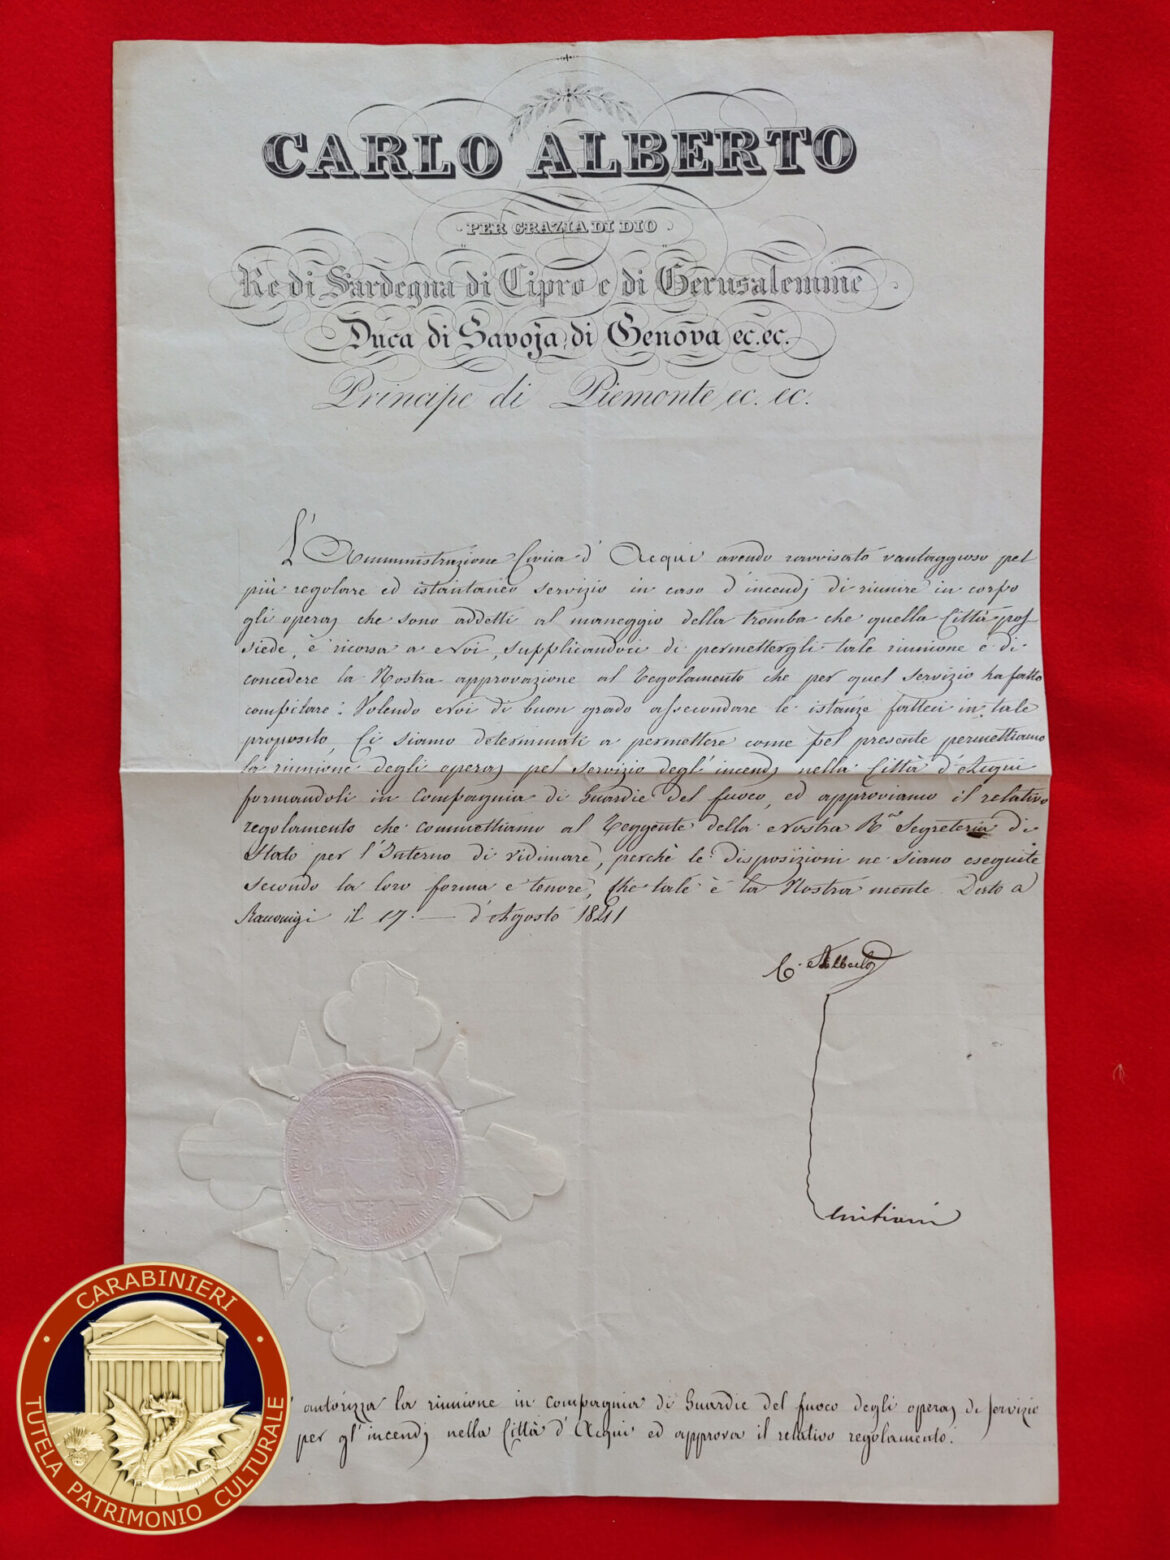 CARLO ALBERTO
PER GRAZIA DI DIO
Re di Sardegna di Cipro e di Gerusalemme
Duca di Savoja, di Genova ec. ec.
Principe di Piemonte, ec. ec.
L'Amministrazione Civica d'Acqui avendo ravvisato vantaggioso pel
più regolare ed istantaneo servizio in caso d'incendj di riunire in corpo
gli operaj che sono addetti al maneggio della tromba che quella Città pos
siede, è ricorsa a Noi, supplicandoci di permettergli tale riunione e di
concedere la Nostra approvazione al Regolamento che per quel servizio ha fatto
compilare: Volendo Noi di buon grado assecondare le istanze fatteci in tale
proposito, Ci siamo determinati a permettere come pel presente permettiamo
la riunione degli operaj pel servizio degl'incendj nella Città d'Acqui
formandoli in Compagnia di Guardie del fuoco, ed approviamo il relativo
regolamento che commettiamo al Reggente della Nostra Ra Segreteria di
Stato per l'Interno di vidimare, perchè le disposizioni ne siano eseguite
secondo la loro forma e tenore, Che tale è la Nostra mente. Dato a
Racconigi il 17. d'Agosto 1841
C. Alberto
autorizza la riunione in Compagnia di Guardie del fuoco degli operaj di servizio
per gl'incendj nella Città d'Acqui ed approva il relativo regolamento.
CARABINIERI
TUTELA PATRIMONIO CULTURALE